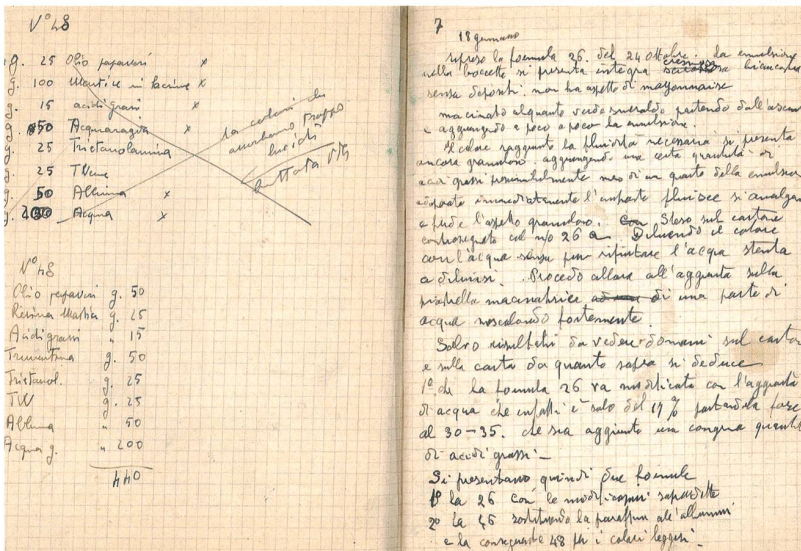 N° 48
g. 25 Olio papaveri x
g. 100 Mastice in lacrime x
g. 15 acidi grassi x
g. 50 Acquaragia x
g. 25 Trietanolamina
g. 25 TWeen
g. 50 Albumina x
g. 200 Acqua x
la colori che
troppo
lucidi
buttata via
N° 48
Olio papaveri g. 50
Resina Mastice g. 25
Acidi grassi " 15
Trementina g. 50
Trietanol. g. 25
TW g. 25
Albumina " 50
Acqua g. " 200
440
7
18 gennaio
ripreso la formula 26 del 24 ottobre. La emulsione
nella boccetta si presenta integra cremosa biancastra
senza depositi. non ha aspetto di mayonnaise
macinato alquanto verde smeraldo partendo dall'asciutto
e aggiungendo a poco a poco la emulsione.
Il colore raggiunto la fluidità necessaria si presenta
ancora granuloso. aggiungendo una certa quantità di
acidi grassi possibilmente meno di un quarto della emulsione
immediatamente l'impasto fluisce si amalgama
e perde l'aspetto granuloso. Con Steso sul cartone
contrassegnato col n/o 26 a. Diluendo il colore
con l'acqua senza pur rifiutare l'acqua stenta
a diluirsi. Procedo allora all'aggiunta sulla
piastrella macinatrice di una parte di
acqua mescolando fortemente.
Salvo risultati da vedere domani sul cartone
e sulla carta da quanto sopra si deduce
1° che la formula 26 va modificata con l'aggiunta
di acqua che infatti è solo del 19% portandola forse
al 30-35. che sia aggiunta una congrua quantità
di acidi grassi. -
Si presentano quindi due formule
1° la 26 con le modificazioni sopraddette
2° la 46 sostituendo la paraffina all'
e la conseguente 48 per i colori leggeri -